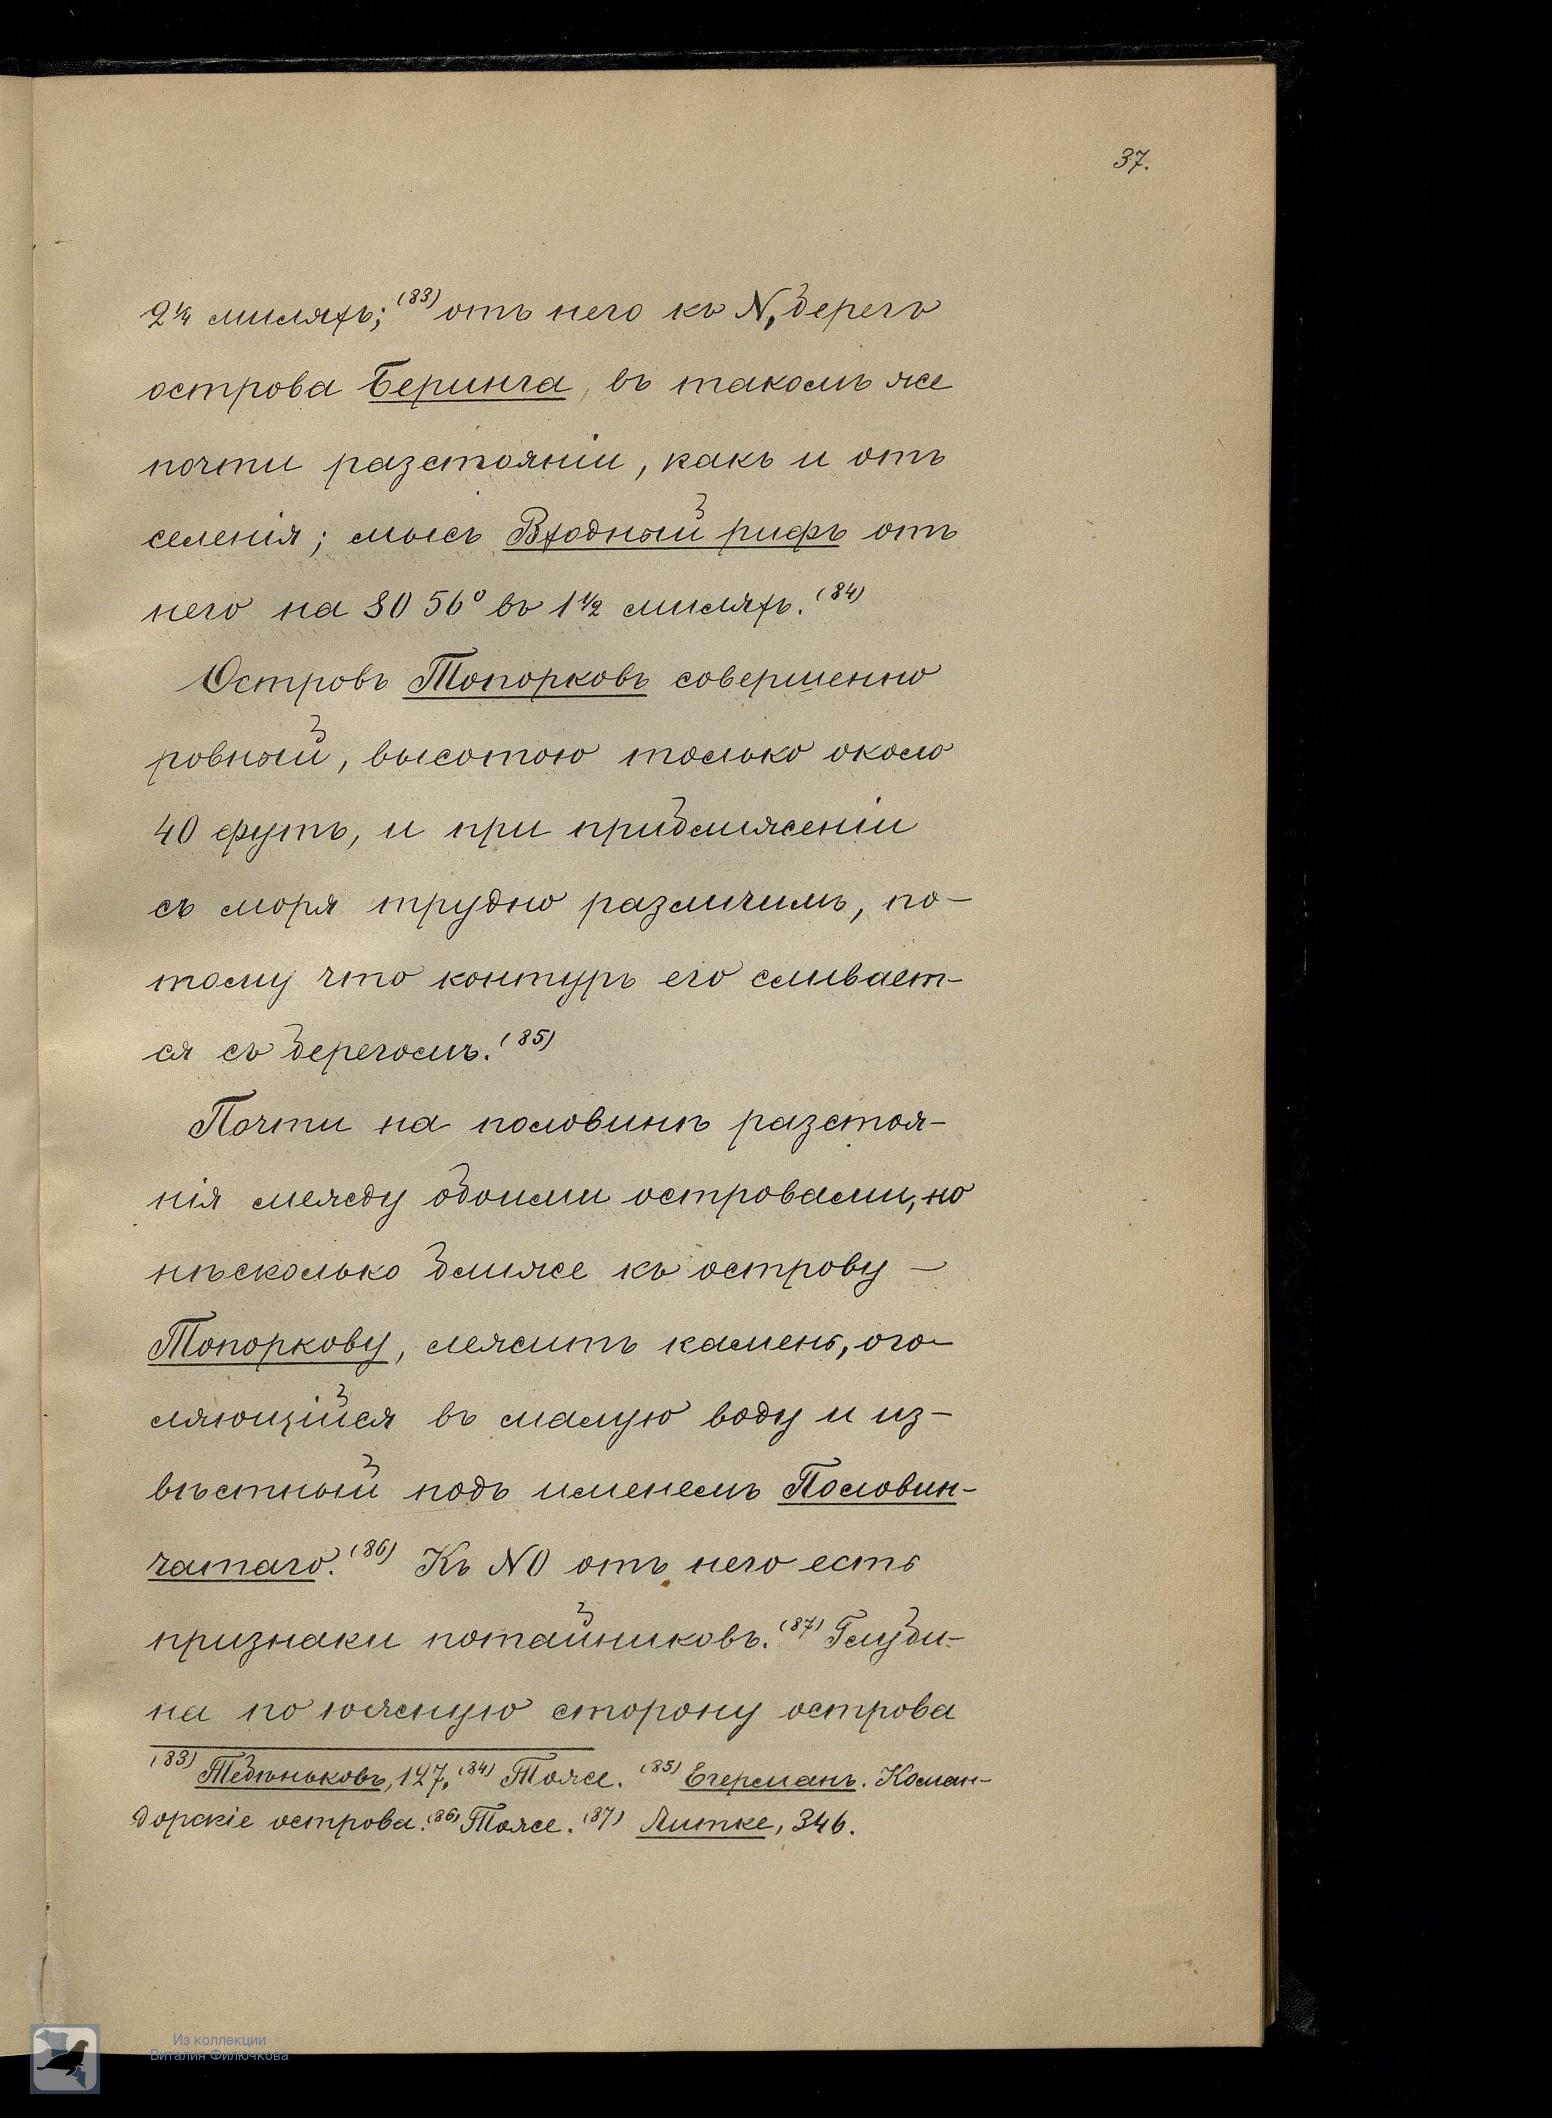 37.
2¼ миляхъ; (83) отъ него къ N, берегъ
острова Беринга, въ такомъ же
почти разстояніи, какъ и отъ
селенія; мысъ Входный рифъ отъ
него на SO 56° въ 1½ миляхъ. (84)
Островъ Топорковъ совершенно
ровный, высотою только около
40 футъ, и при приближеніи
съ моря трудно различимъ, по-
тому что контуръ его сливает-
ся съ берегомъ. (85)
Почти на половинѣ разстоя-
нія между обоими островами, но
нѣсколько ближе къ острову —
Топоркову, лежитъ камень, ого-
ляющійся въ малую воду и из-
вѣстный подъ именемъ Половин-
чатаго. (86) Къ NO отъ него есть
признаки потайниковъ. (87) Глуби-
на по южную сторону острова
(83) Тебѣньковъ, 127, (84) Тоже. (85) Егерманъ. Коман-
дорскіе острова. (86) Тоже. (87) Литке, 346.
Из коллекции
Виталия Филючкова